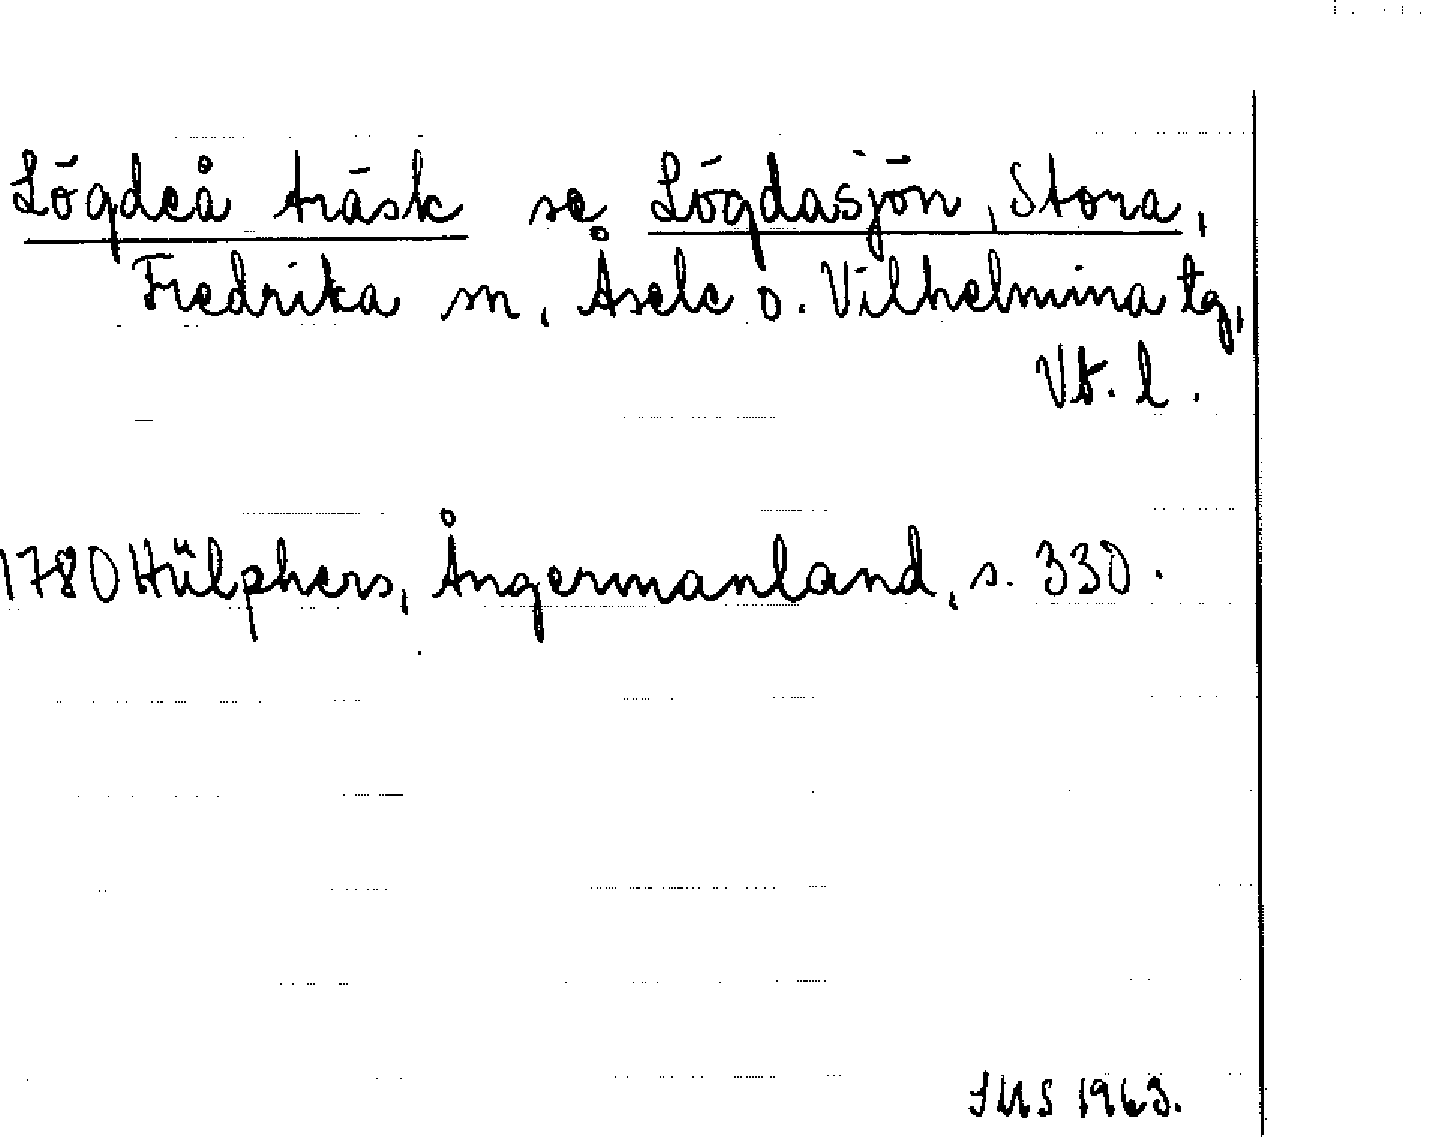 Lögdeå träsk se Lögdasjön, Stora,
Fredrika sn, Åsele o. Vilhelmina tg,
Vb. l.
1780 Hülphers, Ångermanland, s. 330.
SMS 1963.